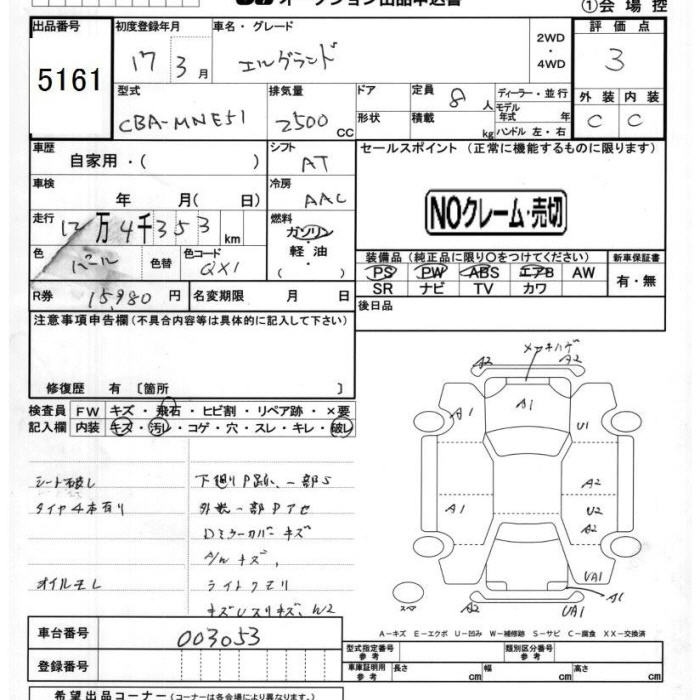 オークション出品申込書
①会場控
出品番号 初度登録年月 車名・グレード 2WD・4WD 評価点
5161 17 3月 エルグランド 3
型式 排気量 ドア 定員 8人 ディーラー・並行 外装 内装
モデル年式 年
CBA-MNE51 2500CC 形状 積載 kg ハンドル 左・右 C C
車歴 シフト セールスポイント (正常に機能するものに限ります)
自家用・( ) AT
車検 冷房
年 月( 日) AAC
NOクレーム・売切
走行 12万4千353km 燃料
ガソリン・軽油・( )
色 パール 色替 色コード QX1
装備品 (純正品に限り○をつけてください) 新車保証書
PS PW ABS エアB AW 有・無
SR ナビ TV カワ
R券 15980円 名変期限 月 日
後日品
注意事項申告欄(不具合内容等は具体的に記入して下さい)
修復歴 有 〔箇所 〕
検査員 FW キズ・飛石・ヒビ割・リペア跡・×要
記入欄 内装 キズ・汚レ・コゲ・穴・スレ・キレ・破レ
シート破レ 下廻りP跡、一部S
タイヤ4本有り 外装一部Pアセ
Dミラーカバーキズ
A/wキズ、
オイルモレ ライトクモリ
メッキハゲ
A2 A2
A1 A1 U1
A2
A1 U2
A2
UA1
A2 UA1 A1
スペア
A-キズ E-エクボ U-凹み W-補修跡 S-サビ C-腐食 XX-交換済
車台番号 003053
型式指定番号 参考 類別区分番号 参考
登録番号
車庫証明用 参考 長さ cm 幅 cm 高さ cm
希望出品コーナー(コーナーは各会場により異なります。)